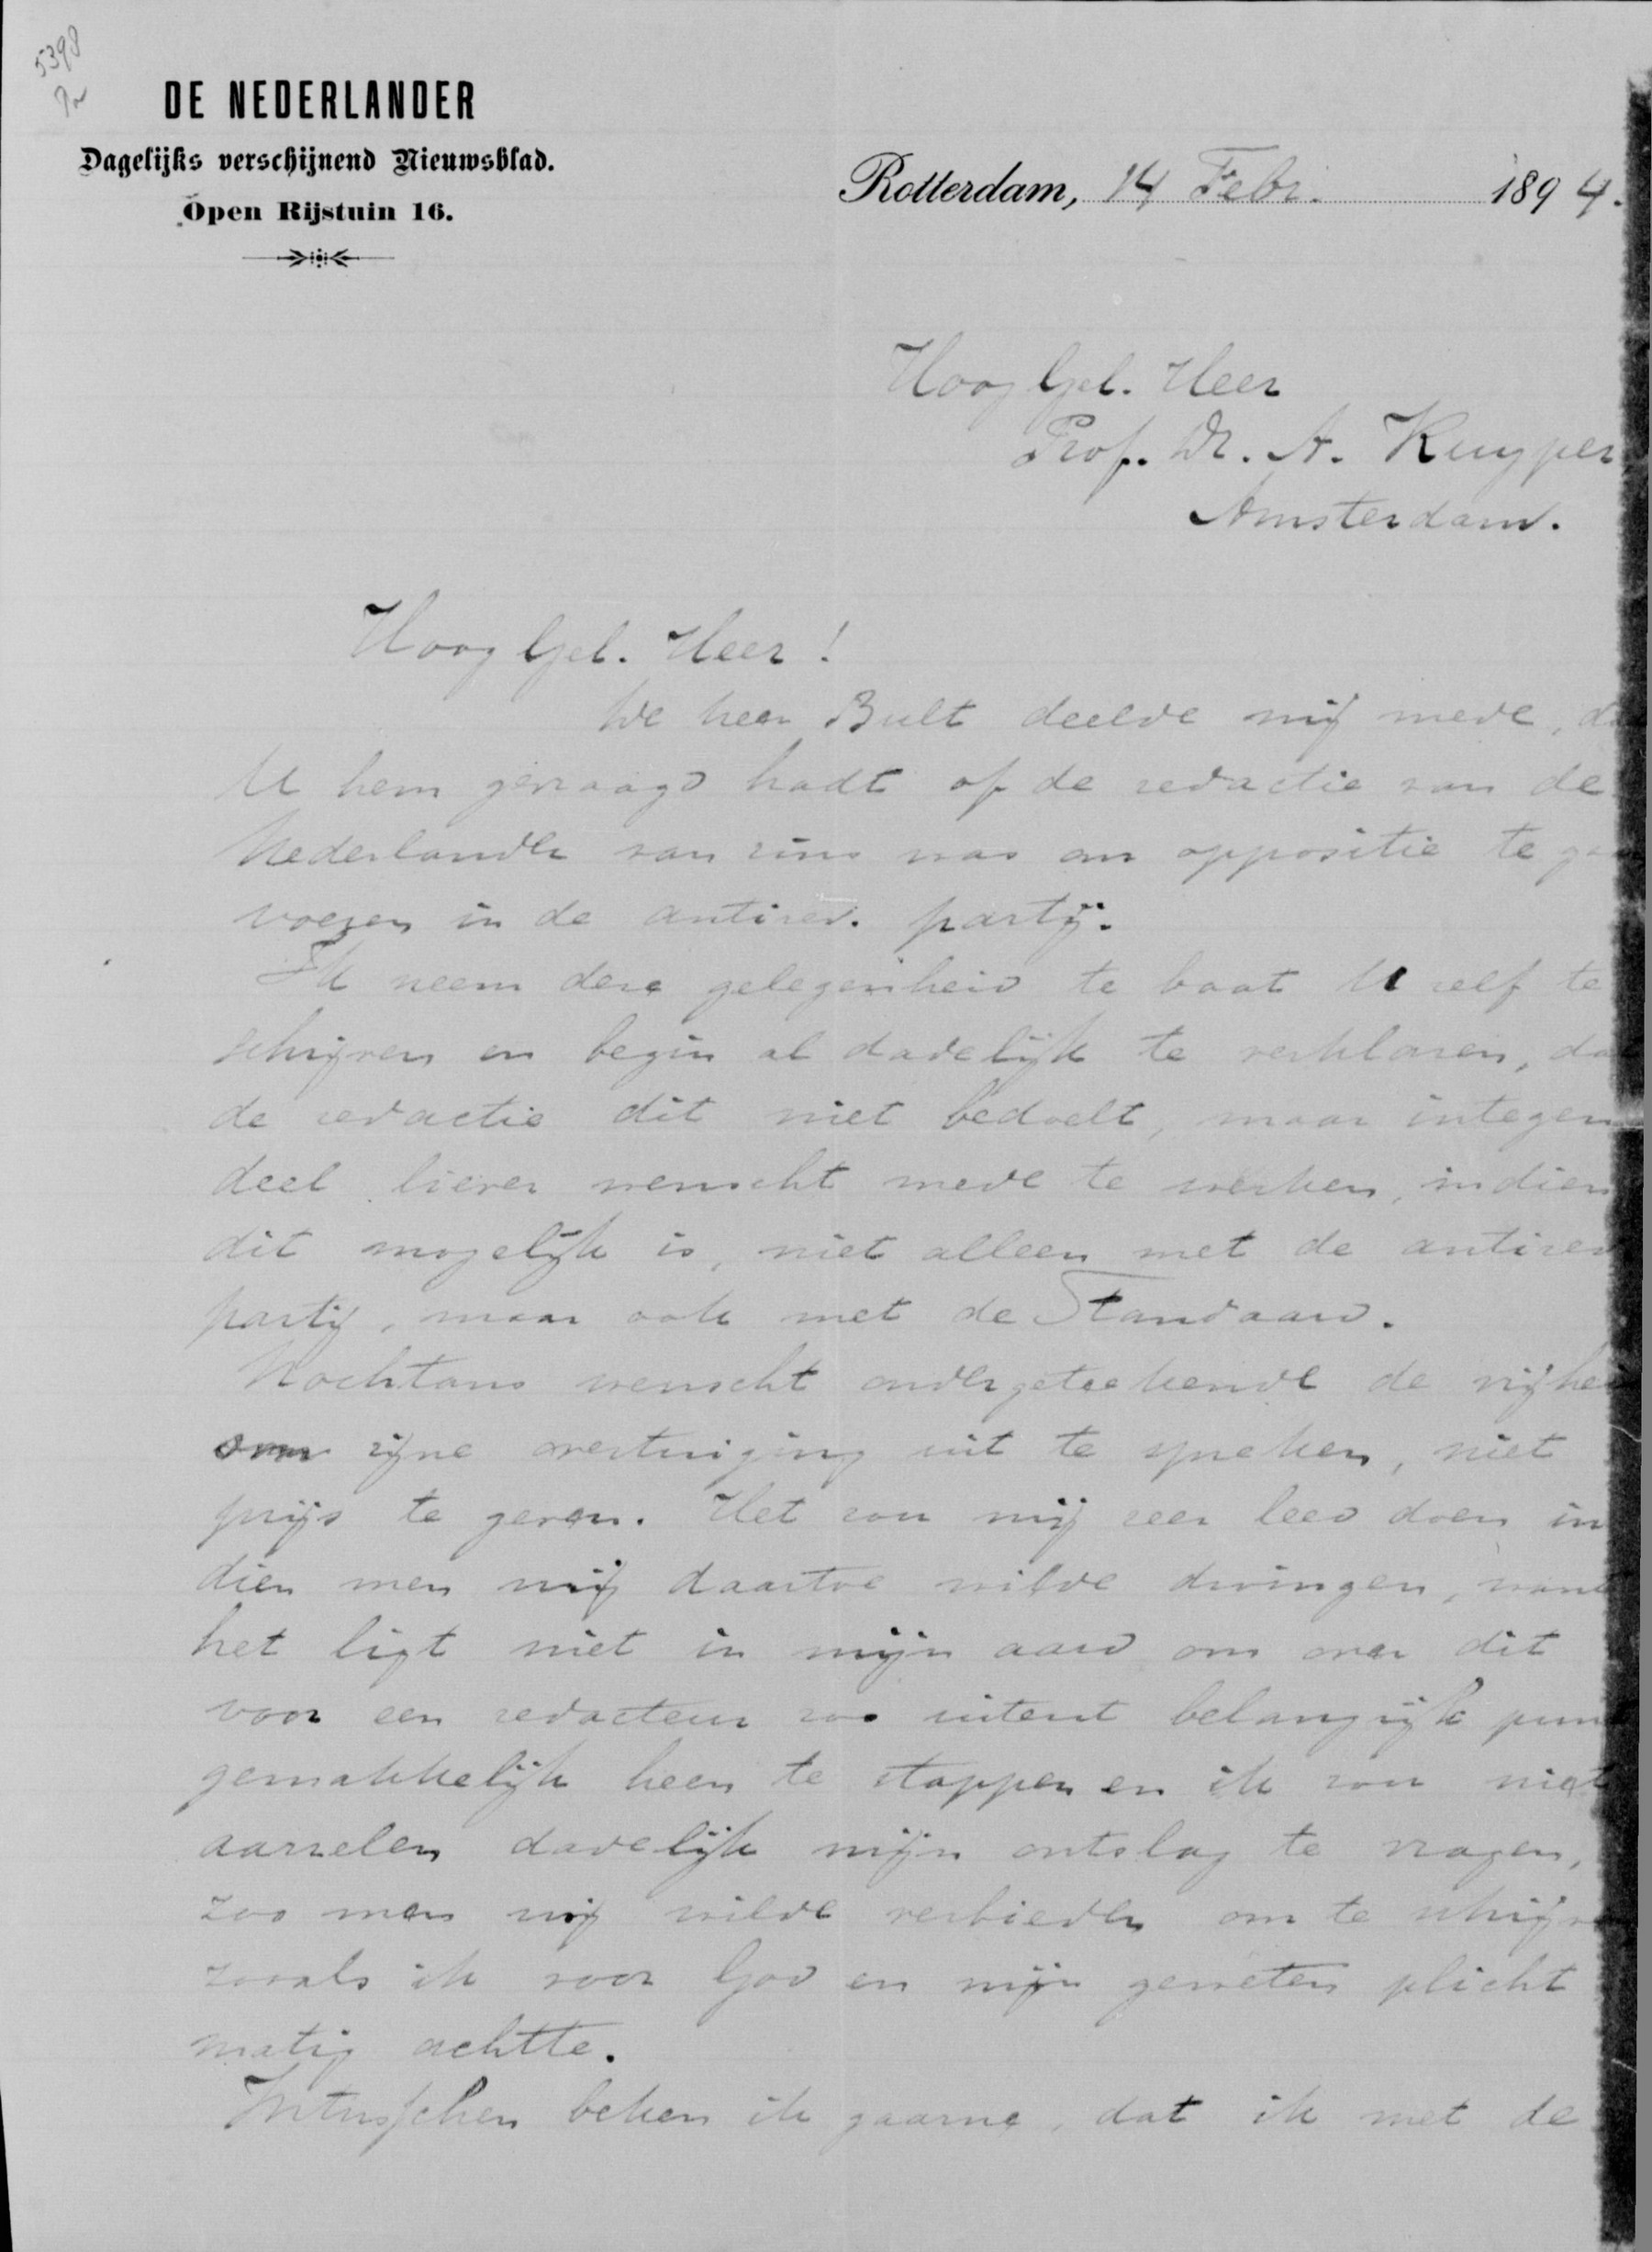 5398
DE NEDERLANDER
Dagelijks verschijnend Nieuwsblad.
Open Rijstuin 16.
Rotterdam, 14 Febr. 1894.
Hoog Gel. Heer
Prof. Dr. A. Kuyper
Amsterdam.
Hoog Gel. Heer!
De heer Bult deelde mij mede, d
U hem gevraagd hadt of de redactie van de
Nederlander van zins was om oppositie te g
voeren in de antirev. partij.
Ik neem deze gelegenheid te baat U zelf te
schrijven en begin al dadelijk te verklaren, da
de redactie dit niet bedoelt, maar integen
deel liever wenscht mede te werken, indien
dit mogelijk is, niet alleen met de antirev
partij, maar ook met de Standaard.
Nochtans wenscht ondergeteekende de vrijhe
om zijne overtuiging uit te spreken, niet
prijs te geven. Het zou mij zeer leed doen in
dien men mij daartoe wilde dwingen, want
het ligt niet in mijn aard om over dit
voor een redacteur zoo uiterst belangrijk pun
gemakkelijk heen te stappen en ik zou niet
aarzelen dadelijk mijn ontslag te vragen,
zoo men mij wilde verbieden om te schrijve
zooals ik voor God en mijn geweten plicht
matig achtte.
Intusschen beken ik gaarne, dat ik met de